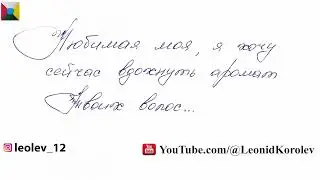 Любимая моя, я хочу
сейчас вдохнуть аромат
Твоих волос...
leolev_12
YouTube.com/@LeonidKorolev